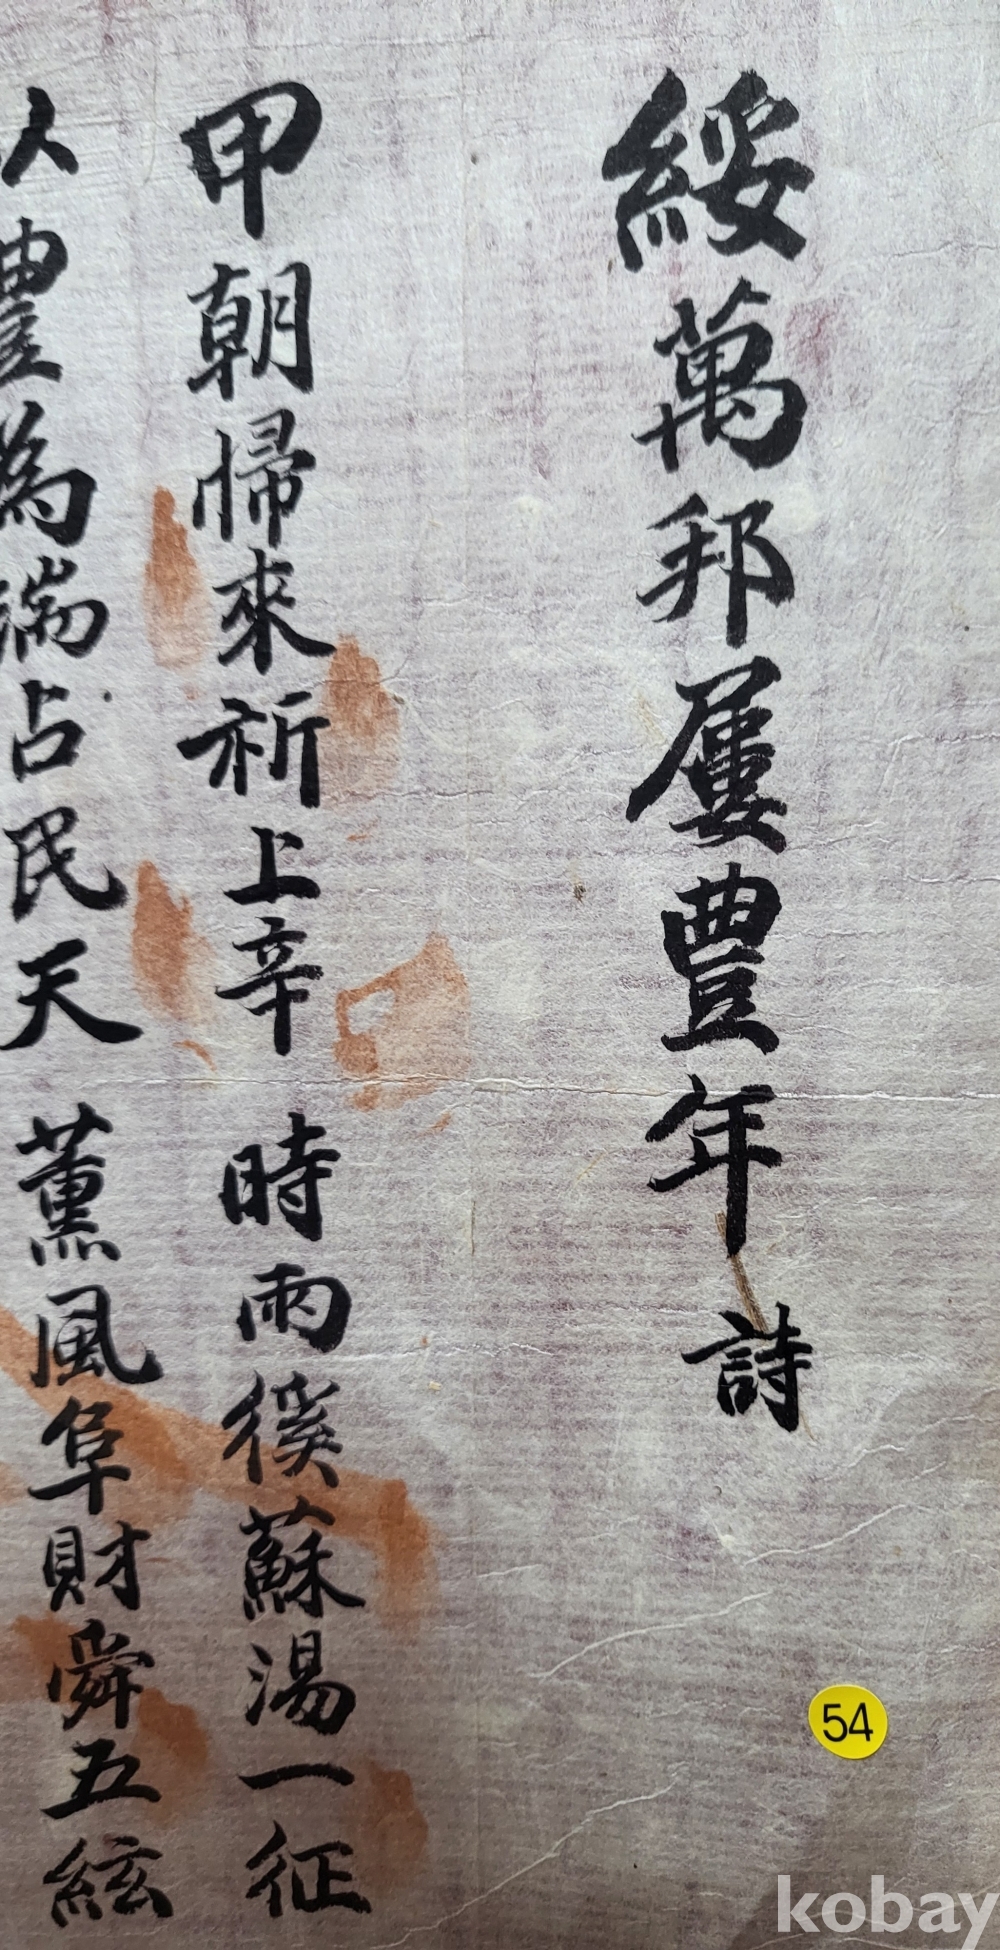 綏萬邦屢豊年詩
甲朝歸來祈上辛 時雨徯蘇湯一征
人豊為瑞占民天 薰風阜財舜五絃
54
kobay